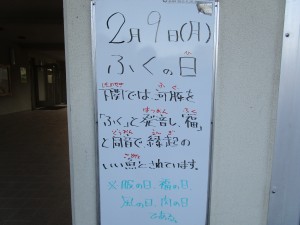 2月9日(月)
ふくの日
下関では河豚を
「ふく」と発音し、「福」
と同音で、縁起の
いい魚とされています。
※服の日、福の日、
である。